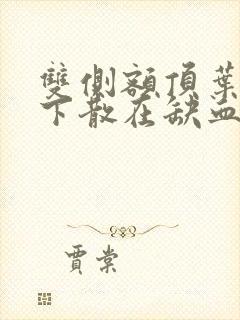 雙側額頂葉
下散在缺血
賈棠